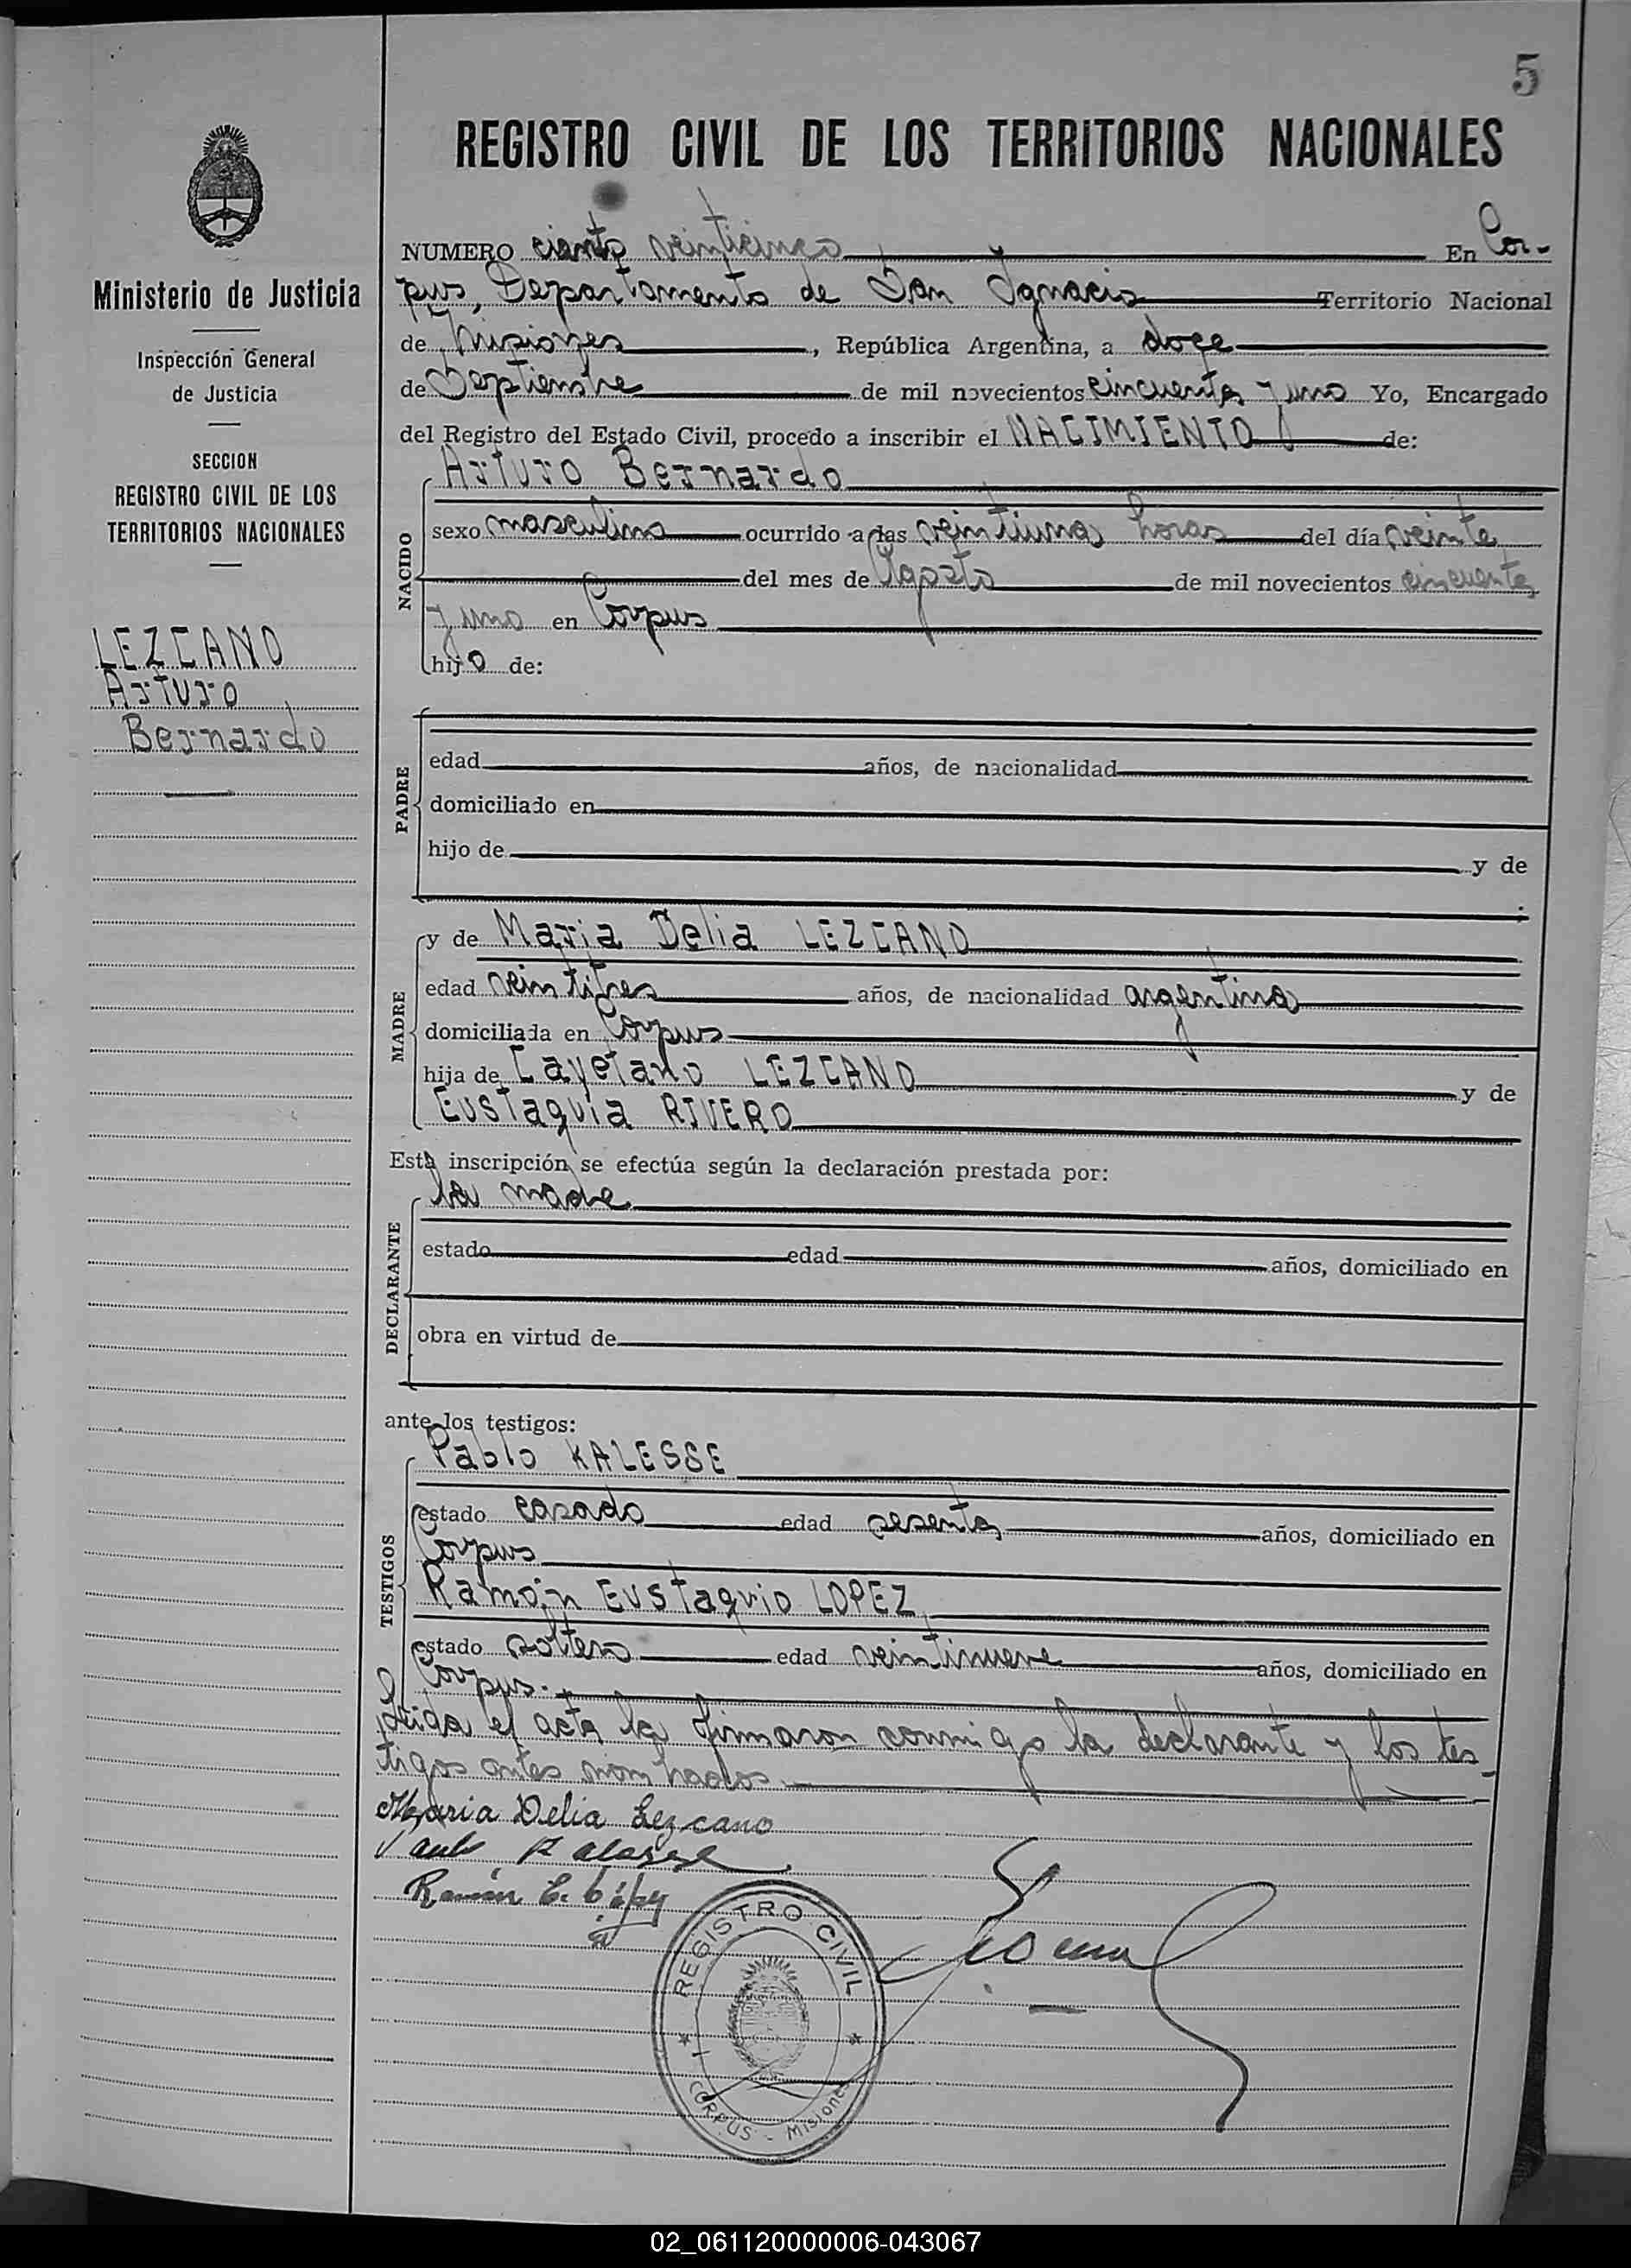 5
REGISTRO CIVIL DE LOS TERRITORIOS NACIONALES
Ministerio de Justicia
Inspección General
de Justicia
SECCION
REGISTRO CIVIL DE LOS
TERRITORIOS NACIONALES
LEZCANO
Arturo
Bernardo
NUMERO ciento veinticinco En Cor-
pus, Departamento de San Ignacio Territorio Nacional
de Misiones, República Argentina, a doce
de Septiembre de mil novecientos cincuenta y uno Yo, Encargado
del Registro del Estado Civil, procedo a inscribir el NACIMIENTO de:
NACIDO
Arturo Bernardo
sexo masculino ocurrido a las veintiuna horas del día veinte
del mes de Agosto de mil novecientos cincuenta
y uno en Corpus
hijo de:
PADRE
edad años, de nacionalidad
domiciliado en
hijo de y de
;
MADRE
y de Maria Delia LEZCANO
edad veintitres años, de nacionalidad argentina
domiciliada en Corpus
hija de Cayetano LEZCANO y de
Eustaquia RIVERO
Esta inscripción se efectúa según la declaración prestada por:
DECLARANTE
la madre
estado edad años, domiciliado en
obra en virtud de
ante los testigos:
TESTIGOS
Pablo KALESSE
estado casado edad sesenta años, domiciliado en
Corpus
Ramón Eustaquio LOPEZ
estado soltero edad veintinueve años, domiciliado en
Corpus.
Leida el acta la firmaron conmigo la declarante y los tes-
tigos antes nombrados.
Maria Delia Lezcano
Ramón E. López
REGISTRO CIVIL
CORPUS - Misiones
02_061120000006-043067